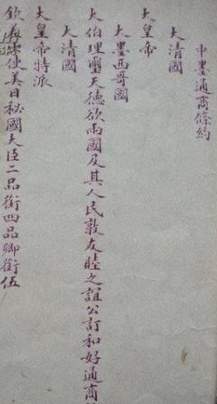 中墨通商條約
大清國
大皇帝
大墨西哥國
大伯理璽天德欲兩國及其人民敦友睦之誼公訂和好通商
大清國
大皇帝特派
欽差出使美日秘國大臣二品銜四品卿銜伍